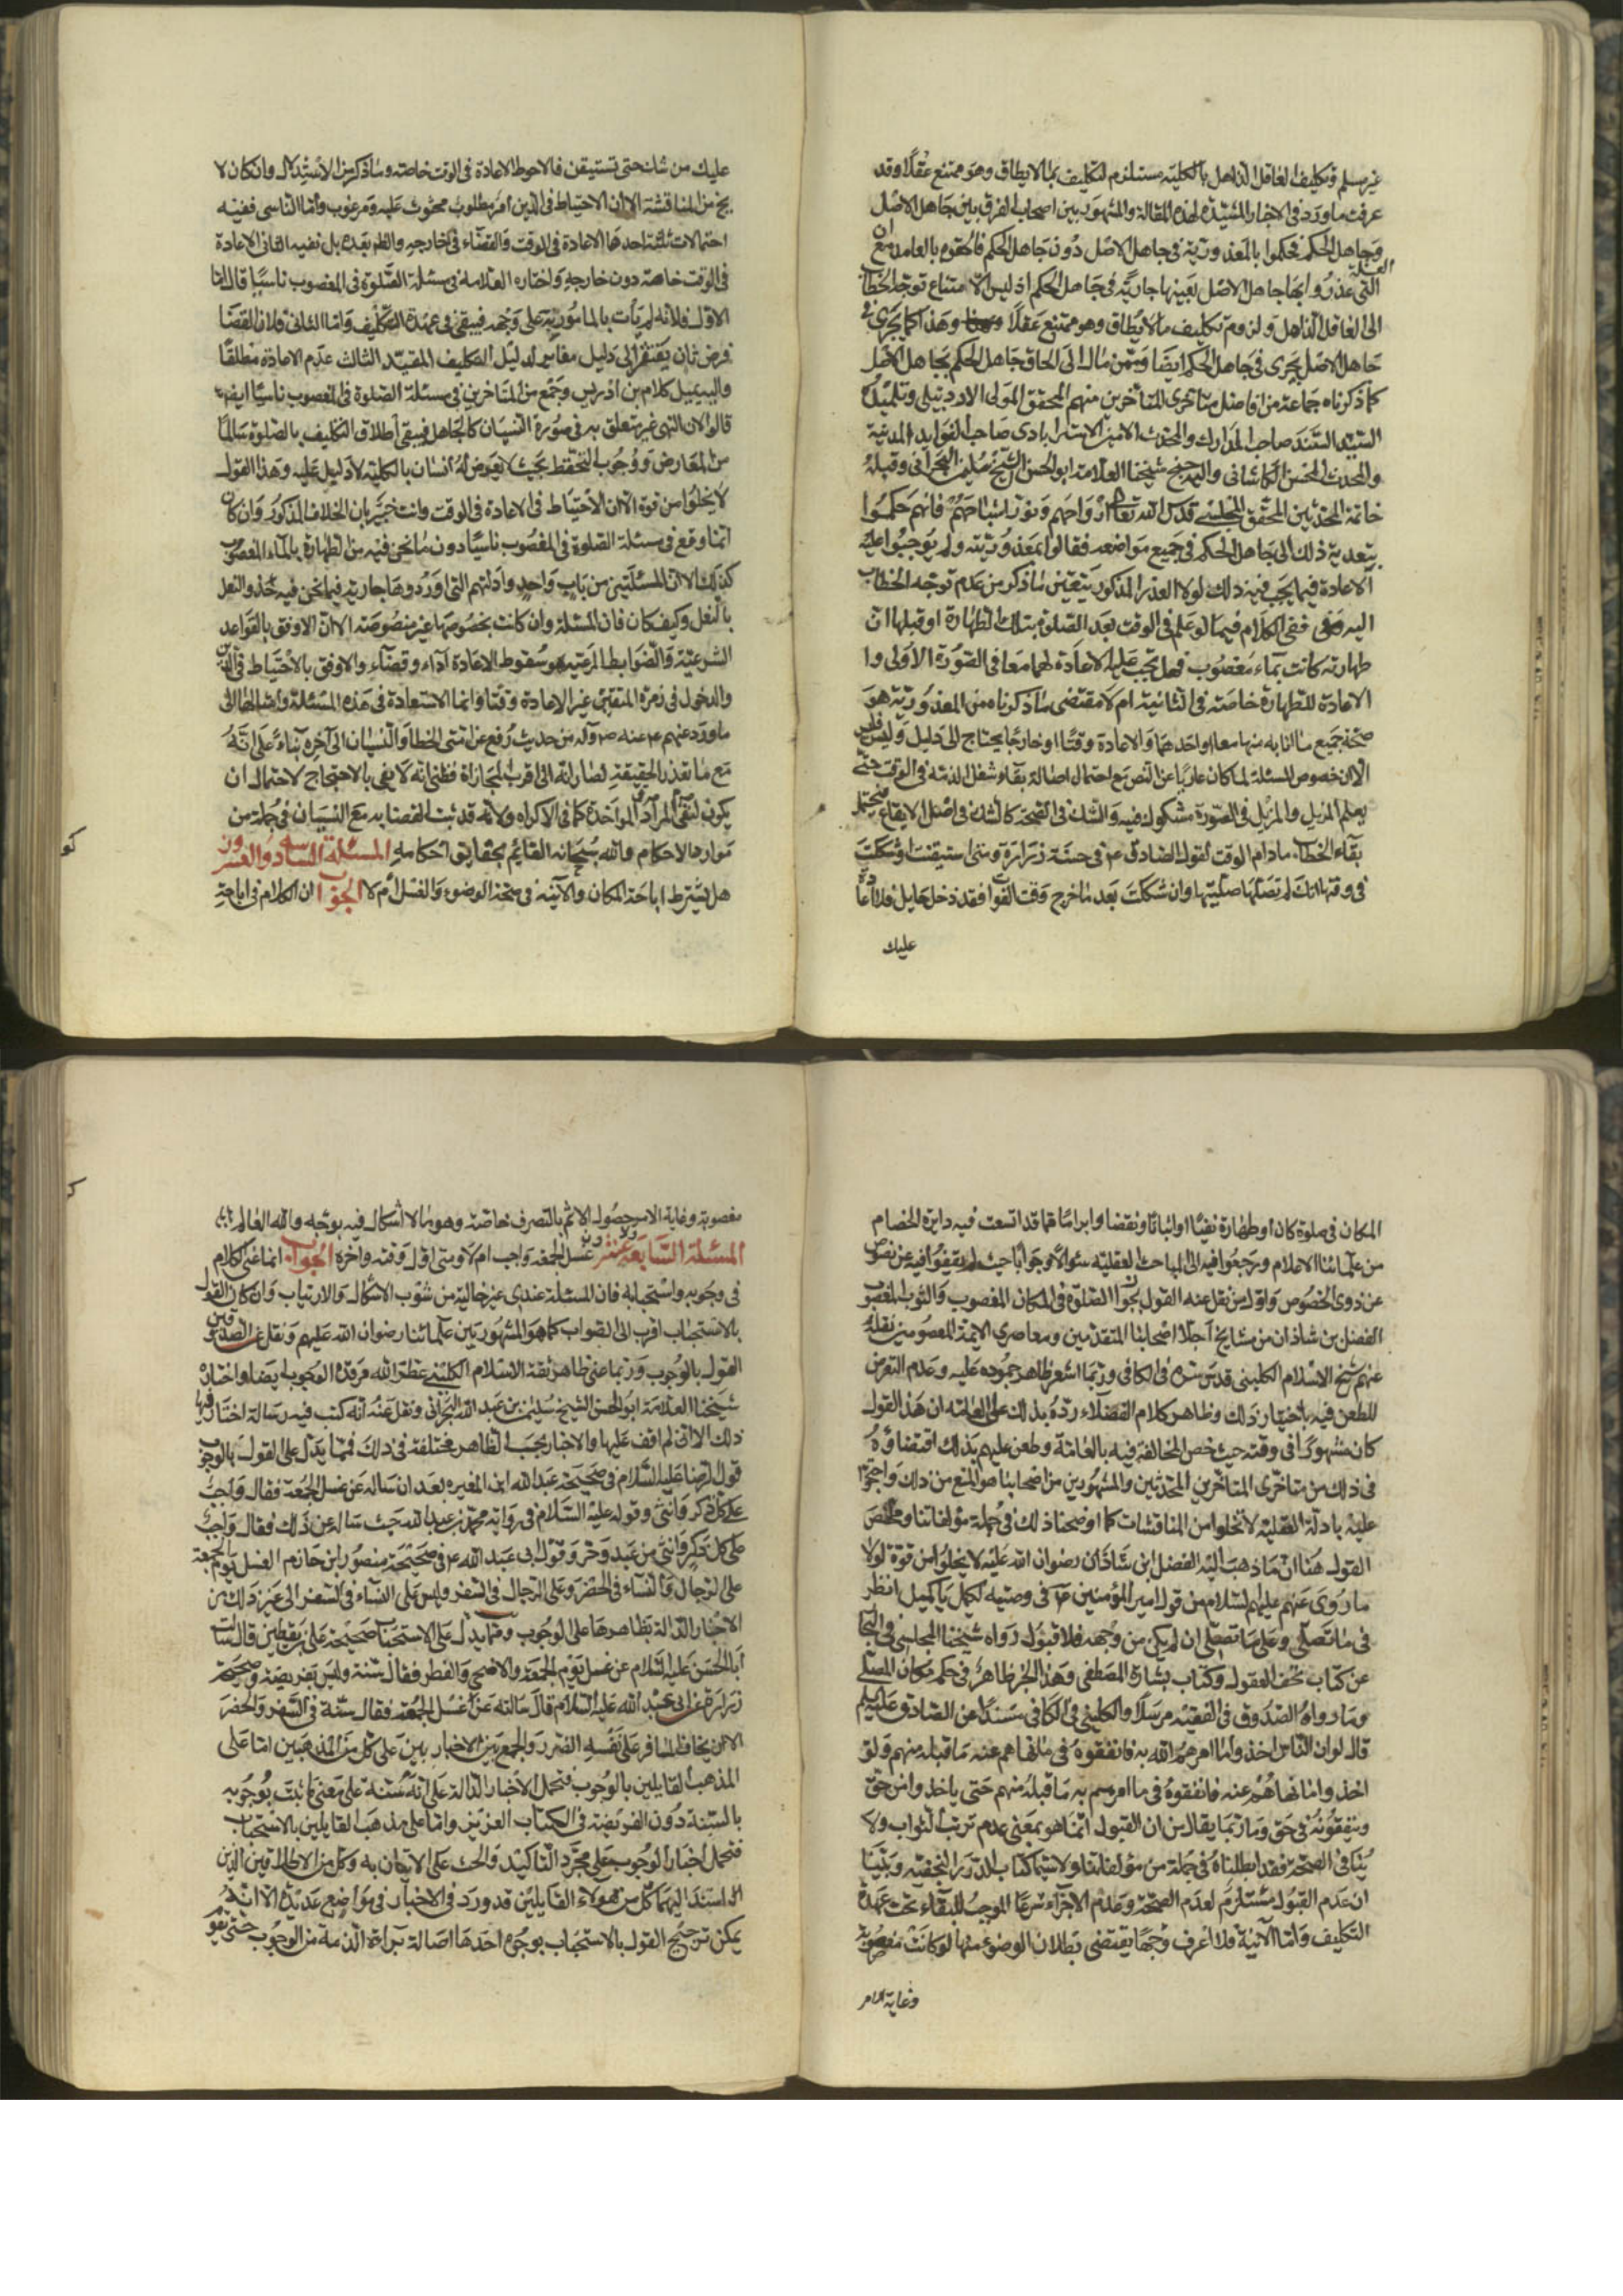 غير مسلم وتكليف الغافل الذاهل بالكلية مستلزم لتكليف بما لا يطاق وهو ممتنع عقلا وقد
عرفت ما ورد في الاخبار المشيّدة لهذه المقالة والمشهور بين اصحاب الفرق بين جاهل الاصل
وجاهل الحكم فحكموا بالمعذورية في جاهل الاصل دون جاهل الحكم فالحقوه بالعامد مع ان
العلة
التي عذروا بها جاهل الاصل بعينها جارية في جاهل الحكم اذ ليس الا امتناع توجه الخطاب
الى الغافل الذاهل ولزوم تكليف ما لا يطاق وهو ممتنع عقلا وهذا كما يجري في
جاهل الاصل يجري في جاهل الحكم ايضا وممن مال الى الحاق جاهل الحكم بجاهل الاصل
كما ذكرناه جماعة من افاضل متاخري المتاخرين منهم المحقق المولى الاردبيلي وتلميذه
السيد السند صاحب المدارك والمحدث الامين الاسترابادي صاحب الفوايد المدنية
والمحدث المحسن الكاشاني واليه جنح شيخنا العلامة ابو الحسن الشيخ سليمن البحراني وقبله
خاتمة المحدثين المحقق المجلسي قدس الله تعالى ارواحهم ونور اشباحهم فانهم حكموا
بتعدية ذلك الى جاهل الحكم في جميع مواضعه فقالوا بمعذوريته ولم يوجبوا عليه
الاعادة فيما يجب فيه ذلك لولا العذر المذكور بتعين ما ذكر من عدم توجه الخطاب
اليه بقي الكلام فيما لو علم في الوقت بعد الصلوة بتلك الطهارة او قبلها ان
طهارته كانت بماء مغصوب فهل تجب عليه الاعادة لهما معا في الصورة الاولى وا
الاعادة للطهارة خاصة في الثانية ام لا مقتضى ما ذكرناه من المعذورية هو
صحة جميع ما اتا به منها معا او احدهما والاعادة وقتا او خارجا يحتاج الى دليل وليس فليس
الا ان خصوص المسئلة لما كان عاريا عن النص مع احتمال اصالة بقاء شغل الذمة في الوقت حتى
يعلم المزيل والمزيل في الصورة مشكوك فيه والشك في الصحة كالشك في اصل الايقاع فيحتمل
بقاء الخطاب ما دام الوقت لقول الصادق ع في حسنة زرارة ومتى استيقنت او شككت
في وقتها انك لم تصلها صليتها وان شككت بعد ما خرج وقت الفوات فقد دخل حايل فلا اعادة
عليك
عليك من شك حتى تستيقن فالاحوط الاعادة في الوقت خاصة وما ذكر من الاستدلال وان كان لا
يخ من المناقشة الا ان الاحتياط في الدين امر مطلوب محثوث عليه ومرغوب واما الناسي ففيه
احتمالات ثلثة احدها الاعادة في الوقت والقضاء في خارجه والظم بعده بل نفيه الثاني الاعادة
في الوقت خاصة دون خارجه واختاره العلامة في مسئلة الصلوة في المغصوب ناسيا قال اما
الاول فلانه لم يأت بالمامور به على وجهه فيبقى في عهدة التكليف واما الثاني فلان القضا
فرض ثان يفتقر الى دليل مغاير لدليل التكليف المقيد الثالث عدم الاعادة مطلقا
واليه يميل كلام بن ادريس وجمع من المتاخرين في مسئلة الصلوة في المغصوب ناسيا ايضا
قالوا لان النهي غير متعلق به في صورة النسيان كالجاهل فيبقى اطلاق التكليف بالصلوة سالما
من المعارض ووجوب التحفظ بحيث لا يعرض له نسيان بالكلية لا دليل عليه وهذا القول
لا يخلوا من قوة الا ان الاحتياط في الاعادة في الوقت وانت خبير بان الخلاف المذكور وان كان
انما وقع في مسئلة الصلوة في المغصوب ناسيا دون ما نحن فيه من الطهارة بالماء المغصوب
كذلك الا ان المسئلتين من باب واحد وادلتهم التي اوردوها جارية فيما نحن فيه حذو النعل
بالنعل وكيف كان فان المسئلة وان كانت بخصوصها غير منصوصة الا ان الاوفق بالقواعد
الشرعية والضوابط المرعية هو سقوط الاعادة اداء وقضاء والاوفق بالاحتياط في الدين
والدخول في زمرة المتقين غير الاعادة وقتا وانما الاستعادة في هذه المسئلة وامثالها الى
ما ورد عنهم ع عنه ص وآله من حديث رفع عن امتي الخطا والنسيان الى آخره بناء على انه
مع ما تعذر الحقيقة يصار انه الى اقرب المجازات فظني انه لا يفي بالاحتجاج لاحتمال ان
يكون لنفي المراد المؤاخذة كما في الاكراه ولانه قد ثبت القضا به مع النسيان في جملة من
موارد الاحكام والله سبحانه القائم بحقايق احكامه المسئلة السادسه والعشرون
هل يشترط اباحة المكان والآنية في صحة الوضوء والغسل ام لا الجواب ان الكلام في اباحة
كو
المكان في صلوة كان او طهارة نفيا او اثباتا ونقضا وابراما مما قد اتسعت فيه دايرة الخصام
من علمائنا الاعلام ورجعوا فيه الى المباحث العقلية سئوالا وجوابا حيث لم يقفوا فيه عن نصوص
عن ذوي الخصوص واول من نقل عنه القول بجواز الصلوة في المكان المغصوب والثوب المغصوب
الفضل بن شاذان من مشايخ اجلاء اصحابنا المتقدمين ومعاصري الائمة المعصومين نقله
عنه شيخ الاسلام الكليني قدس سره في الكافي وربما اشعر ظاهر جموده عليه وعدم التعرض
للطعن فيه باختيار ذلك وظاهر كلام الفضلاء رده بذلك على العامة ان هذا القول
كان مشهورا في وقته حيث خص المخالفة فيه بالعامة وطعن عليهم بذلك اقتفاؤه
في ذلك من متاخري المتاخرين المحدثين والمشهور بين اصحابنا هو المنع من ذلك واحتجوا
عليه بادلة العقلية لا تخلوا من المناقشات كما اوضحنا ذلك في جملة مؤلفاتنا وملخص
القول هنا ان ما ذهب اليه الفضل ابن شاذان رضوان الله عليه لا يخلوا من قوة لولا
ما روى عنهم عليهم السلام من قول امير المؤمنين ع في وصيته لكميل يا كميل انظر
في ما تصلي وعلى ما تصلي ان لم يكن من وجهه فلا قبول رواه شيخنا المجلسي في البحا
عن كتاب تحف العقول وكتاب بشارة المصطفى وهذا الخبر ظاهر في حكم مكان المصلي
وما رواه الصدوق في الفقيه مرسلا والكليني في الكافي مسندا عن الصادق عليه السلم
قال لو ان الناس اخذوا ما امرهم الله به فانفقوه في ما نهاهم عنه ما قبله منهم ولو
اخذوا ما نهاهم عنه فانفقوه في ما امرهم به ما قبله منهم حتى ياخذوا من حق
وينفقونه في حق وما ربما يقال من ان القبول انما هو بمعنى عدم ترتب الثواب ولا
ينافي الصحة فقد ابطلناه في جملة من مؤلفاتنا ولا سيما كتاب الدرر النجفية وبينا
ان عدم القبول مستلزم لعدم الصحة وعدم الاجزاء شرعا الموجب للبقاء تحت عهدة
التكليف واما الآنية فلا اعرف وجها يقتضي بطلان الوضوء منها لو كانت مغصوبة
وغاية الامر
مغصوبة وغاية الامر حصول الاثم بالتصرف خاصة وهو مما لا اشكال فيه بوجه والله العالم
المسئلة السابعة والعشرون غسل الجمعه واجب ام لا ومتى اول وقته وآخره الجواب اما في الكلام
في وجوبه واستحبابه فان المسئلة عندي غير خالية من شوب الاشكال والارتياب وان كان القول
بالاستحباب اقرب الى الصواب كما هو المشهور بين علمائنا رضوان الله عليهم ونقل عن الصدوقين
القول بالوجوب وربما صني ظاهر ثقة الاسلام الكليني عطر الله مرقده الوجوب ايضا واختاره
شيخنا العلامة ابو الحسن الشيخ سليمن بن عبد الله البحراني ونقل عنه انه كتب فيه رسالة اختار فيها
ذلك الا اني لم اقف عليها والاخبار بحسب الظاهر مختلفة في ذلك فمما يدل على القول بالوجوب
قول الرضا عليه السلام في صحيحة عبد الله ابن المغيره بعد ان ساله عن غسل الجمعة فقال واجب
على كل ذكر وانثى وقوله عليه السلام في رواية محمد بن عبد الله حيث ساله عن ذلك فقال واجب
على كل ذكر وانثى من عبد وحر وقول ابي عبد الله ع في صحيحة منصور ابن حازم الغسل يوم الجمعة
على الرجال والنساء في الحضر وعلى الرجال في السفر وليس على النساء في السفر الى غير ذلك من
الاخبار الدالة بظاهرها على الوجوب ومما يدل على الاستحباب صحيحة علي بن يقطين قال سالت
ابا الحسن عليه السلام عن غسل يوم الجمعة والاضحى والفطر فقال سنة وليس بفريضة وصحيحة
زرارة عن ابي عبد الله عليه السلام قال سالته عن غسل الجمعة فقال سنة في السفر والحضر
الا ان يخاف المسافر على نفسه الضرر والجمع بين الاخبار بين على كل من المذهبين اما على
المذهب القايلين بالوجوب فتحمل الاخبار الدالة على انه سنة على معنى ما ثبت وجوبه
بالسنة دون الفريضة في الكتاب العزيز واما على مذهب القايلين بالاستحباب
فتحمل اخبار الوجوب على مجرد التاكيد والحث على الاتيان به وكل من الاطلاقين الذين
استند اليهما كل من هولاء القايلين قد ورد في الاخبار في مواضع عديدة الا انه
يمكن ترجيح القول بالاستحباب بوجوه احدها اصالة براءة الذمة من الوجوب حتى يقو